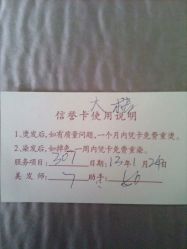 大桥
信誉卡使用说明
1.烫发后,如有质量问题,一个月内凭卡免费重烫。
2.染发后,如掉色,一周内凭卡免费重染。
服务项目:307 日期:13年1月24日
美发师:7 助手: